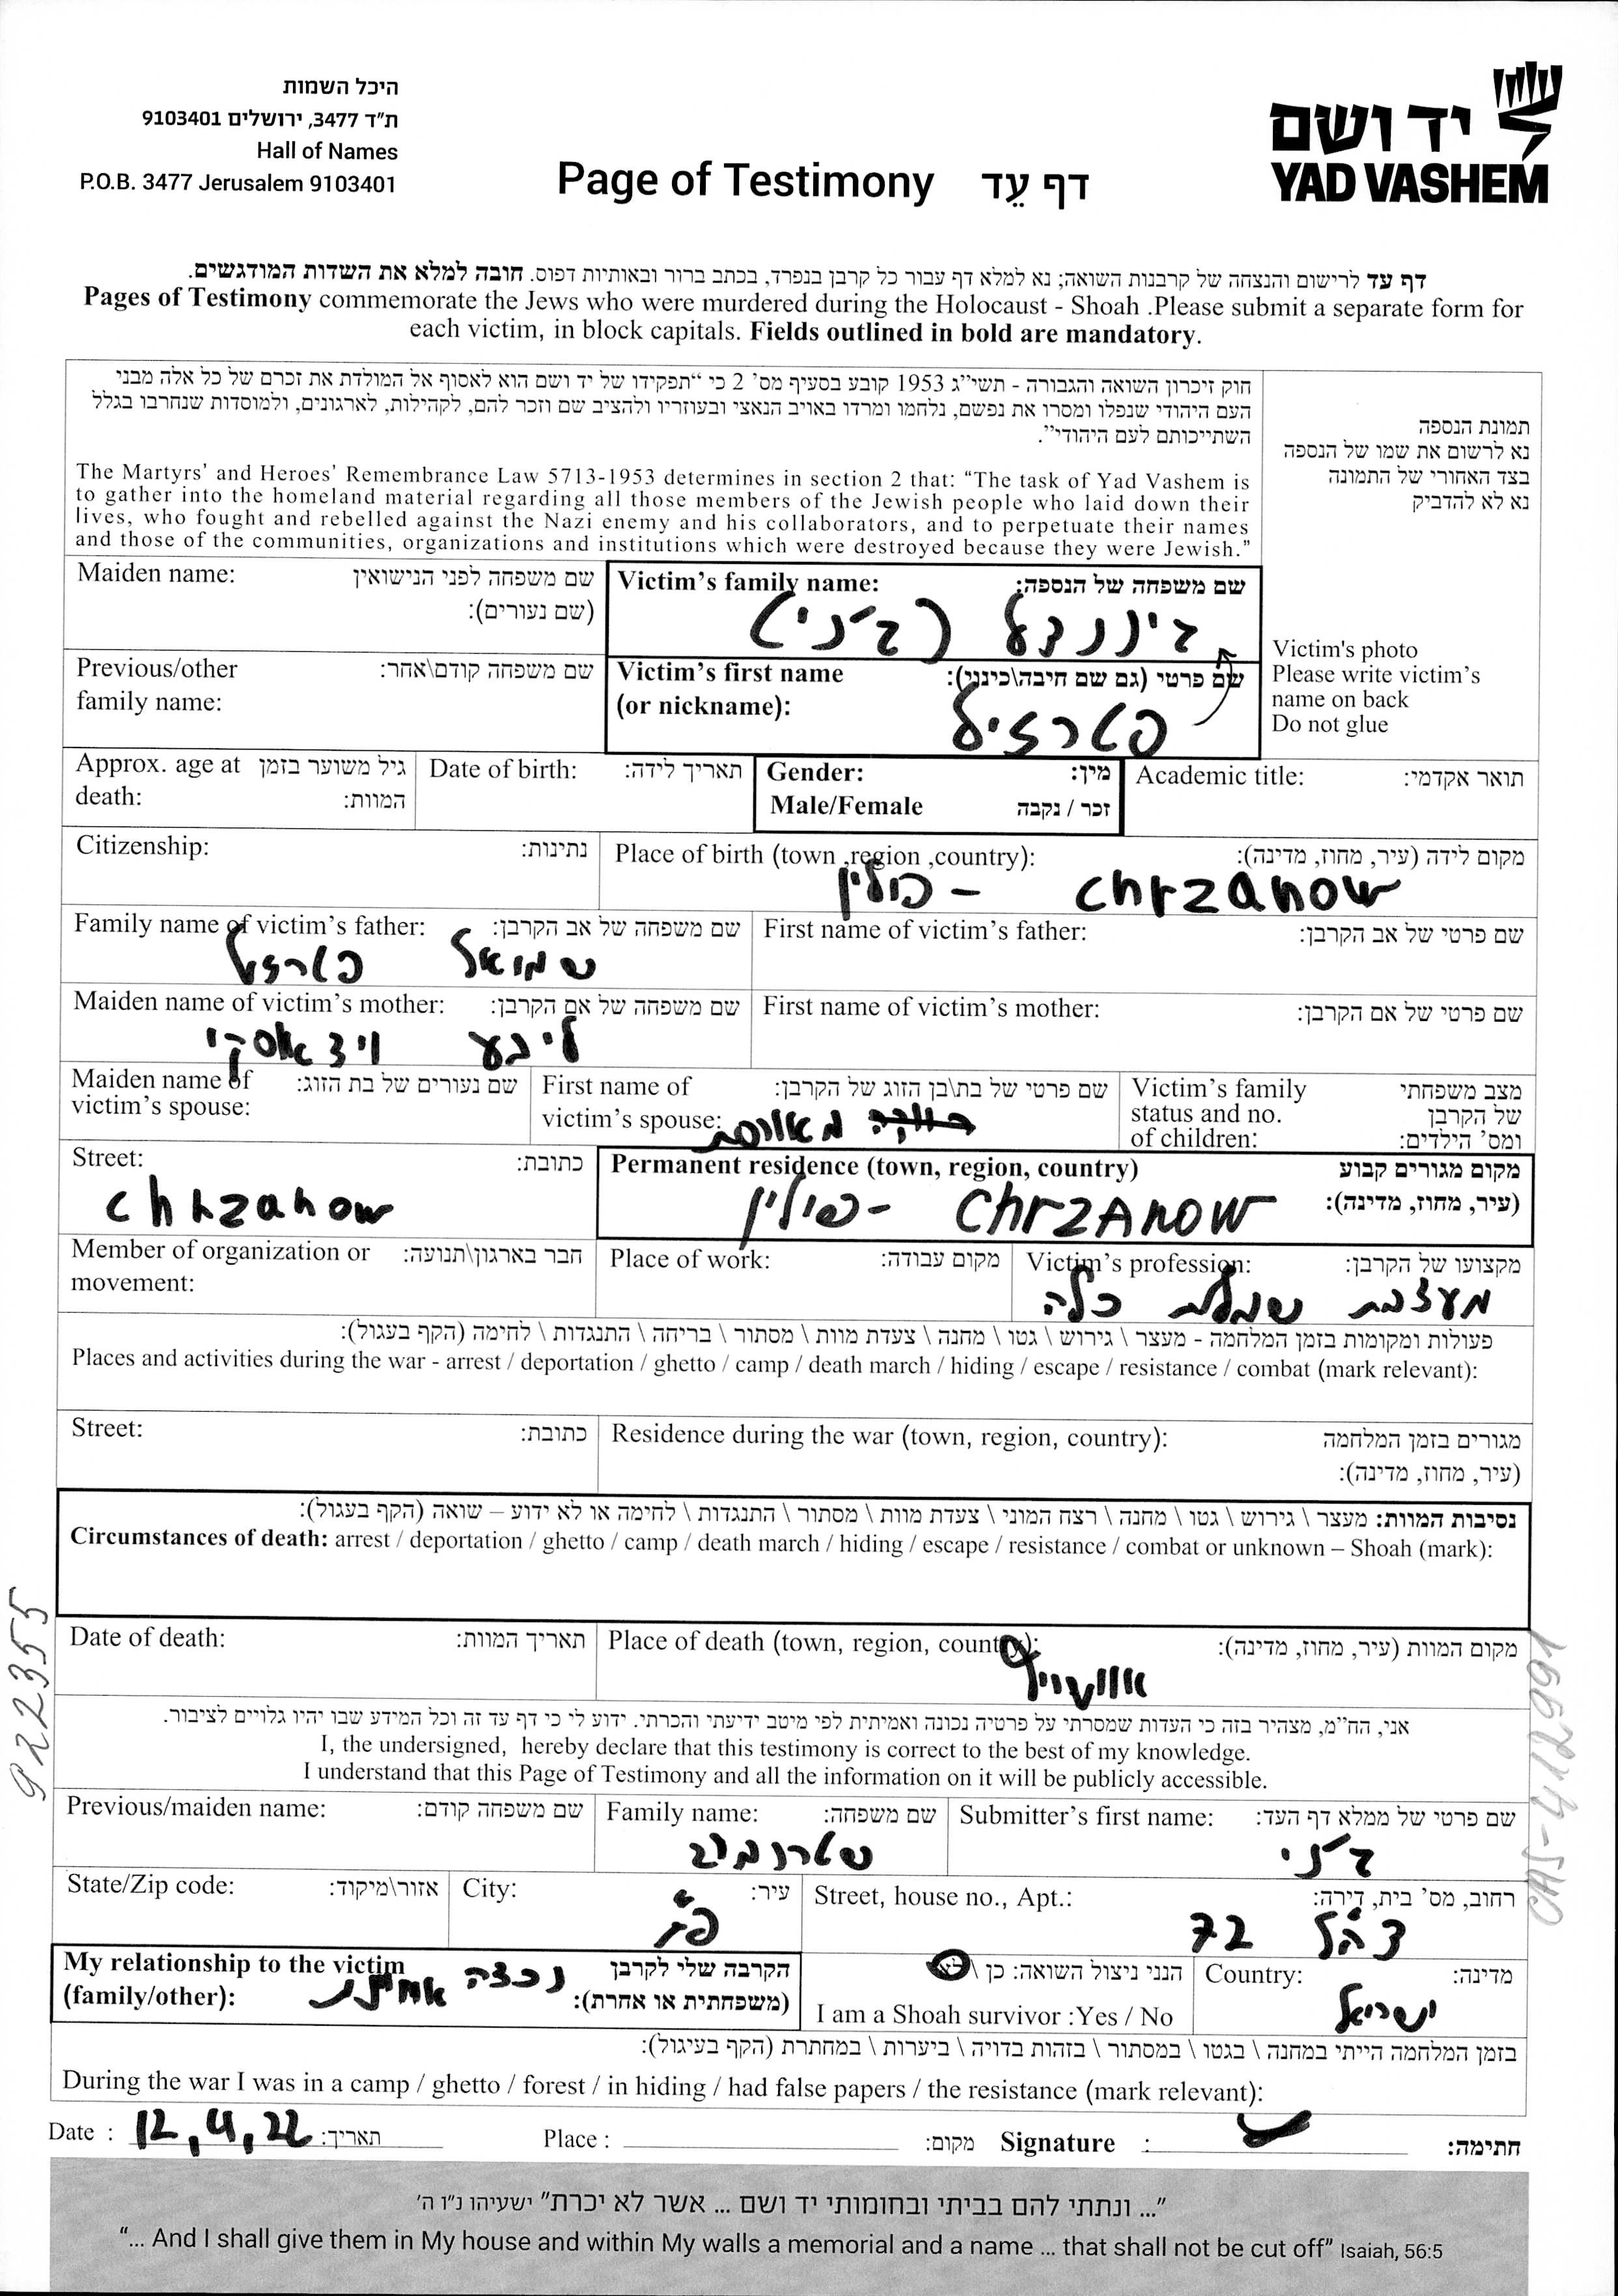 היכל השמות
ת"ד 3477, ירושלים 9103401
Hall of Names
P.O.B. 3477 Jerusalem 9103401
Page of Testimony דף עֵד
יד ושם
YAD VASHEM
דף עד לרישום והנצחה של קרבנות השואה; נא למלא דף עבור כל קרבן בנפרד, בכתב ברור ובאותיות דפוס. חובה למלא את השדות המודגשים.
Pages of Testimony commemorate the Jews who were murdered during the Holocaust - Shoah .Please submit a separate form for
each victim, in block capitals. Fields outlined in bold are mandatory.
חוק זיכרון השואה והגבורה - תשי"ג 1953 קובע בסעיף מס' 2 כי "תפקידו של יד ושם הוא לאסוף אל המולדת את זכרם של כל אלה מבני
העם היהודי שנפלו ומסרו את נפשם, נלחמו ומרדו באויב הנאצי ובעוזריו ולהציב שם וזכר להם, לקהילות, לארגונים, ולמוסדות שנחרבו בגלל
השתייכותם לעם היהודי".
The Martyrs' and Heroes' Remembrance Law 5713-1953 determines in section 2 that: "The task of Yad Vashem is
to gather into the homeland material regarding all those members of the Jewish people who laid down their
lives, who fought and rebelled against the Nazi enemy and his collaborators, and to perpetuate their names
and those of the communities, organizations and institutions which were destroyed because they were Jewish."
תמונת הנספה
נא לרשום את שמו של הנספה
בצד האחורי של התמונה
נא לא להדביק
Victim's photo
Please write victim's
name on back
Do not glue
Maiden name: שם משפחה לפני הנישואין
(שם נעורים):
Victim's family name: שם משפחה של הנספה:
דיננדל (ג'ני)
Previous/other שם משפחה קודם\אחר:
family name:
Victim's first name שם פרטי (גם שם חיבה\כינוי):
(or nickname):
פטרזיל
Approx. age at גיל משוער בזמן
death: המוות:
Date of birth: תאריך לידה:
Gender: מין:
Male/Female זכר / נקבה
Academic title: תואר אקדמי:
Citizenship: נתינות:
Place of birth (town ,region ,country): מקום לידה (עיר, מחוז, מדינה):
chrzanow - פולין
Family name of victim's father: שם משפחה של אב הקרבן:
שמואל פטרזיל
First name of victim's father: שם פרטי של אב הקרבן:
Maiden name of victim's mother: שם משפחה של אם הקרבן:
ליבע
First name of victim's mother: שם פרטי של אם הקרבן:
Maiden name of שם נעורים של בת הזוג:
victim's spouse:
First name of שם פרטי של בת\בן הזוג של הקרבן:
victim's spouse:
מאורסת
Victim's family מצב משפחתי
status and no. של הקרבן
of children: ומס' הילדים:
Street: כתובת:
chrzanow
Permanent residence (town, region, country) מקום מגורים קבוע
(עיר, מחוז, מדינה):
CHrZANOW - פולין
Member of organization or חבר בארגון\תנועה:
movement:
Place of work: מקום עבודה:
Victim's profession: מקצועו של הקרבן:
מעצבת שמלות כלה
פעולות ומקומות בזמן המלחמה - מעצר \ גירוש \ גטו \ מחנה \ צעדת מוות \ מסתור \ בריחה \ התנגדות \ לחימה (הקף בעגול):
Places and activities during the war - arrest / deportation / ghetto / camp / death march / hiding / escape / resistance / combat (mark relevant):
Street: כתובת:
Residence during the war (town, region, country): מגורים בזמן המלחמה
(עיר, מחוז, מדינה):
נסיבות המוות: מעצר \ גירוש \ גטו \ מחנה \ רצח המוני \ צעדת מוות \ מסתור \ התנגדות \ לחימה או לא ידוע – שואה (הקף בעגול):
Circumstances of death: arrest / deportation / ghetto / camp / death march / hiding / escape / resistance / combat or unknown – Shoah (mark):
Date of death: תאריך המוות:
Place of death (town, region, country): מקום המוות (עיר, מחוז, מדינה):
אושוויץ
אני, הח"מ, מצהיר בזה כי העדות שמסרתי על פרטיה נכונה ואמיתית לפי מיטב ידיעתי והכרתי. ידוע לי כי דף עד זה וכל המידע שבו יהיו גלויים לציבור.
I, the undersigned, hereby declare that this testimony is correct to the best of my knowledge.
I understand that this Page of Testimony and all the information on it will be publicly accessible.
Previous/maiden name: שם משפחה קודם:
Family name: שם משפחה:
שטרנברג
Submitter's first name: שם פרטי של ממלא דף העד:
ג'ני
State/Zip code: אזור\מיקוד:
City: עיר:
פ"ת
Street, house no., Apt.: רחוב, מס' בית, דירה:
צה"ל 72
My relationship to the victim הקרבה שלי לקרבן
(family/other): (משפחתית או אחרת):
נכדה אחיינית
הנני ניצול השואה: כן \ לא
I am a Shoah survivor :Yes / No
Country: מדינה:
ישראל
בזמן המלחמה הייתי במחנה \ בגטו \ במסתור \ בזהות בדויה \ ביערות \ במחתרת (הקף בעיגול):
During the war I was in a camp / ghetto / forest / in hiding / had false papers / the resistance (mark relevant):
Date : 12,4,22 תאריך:
Place : מקום:
Signature : חתימה:
"... ונתתי להם בביתי ובחומותי יד ושם ... אשר לא יכרת" ישעיהו נ"ו ה'
"... And I shall give them in My house and within My walls a memorial and a name ... that shall not be cut off" Isaiah, 56:5
922355
CAS-412991